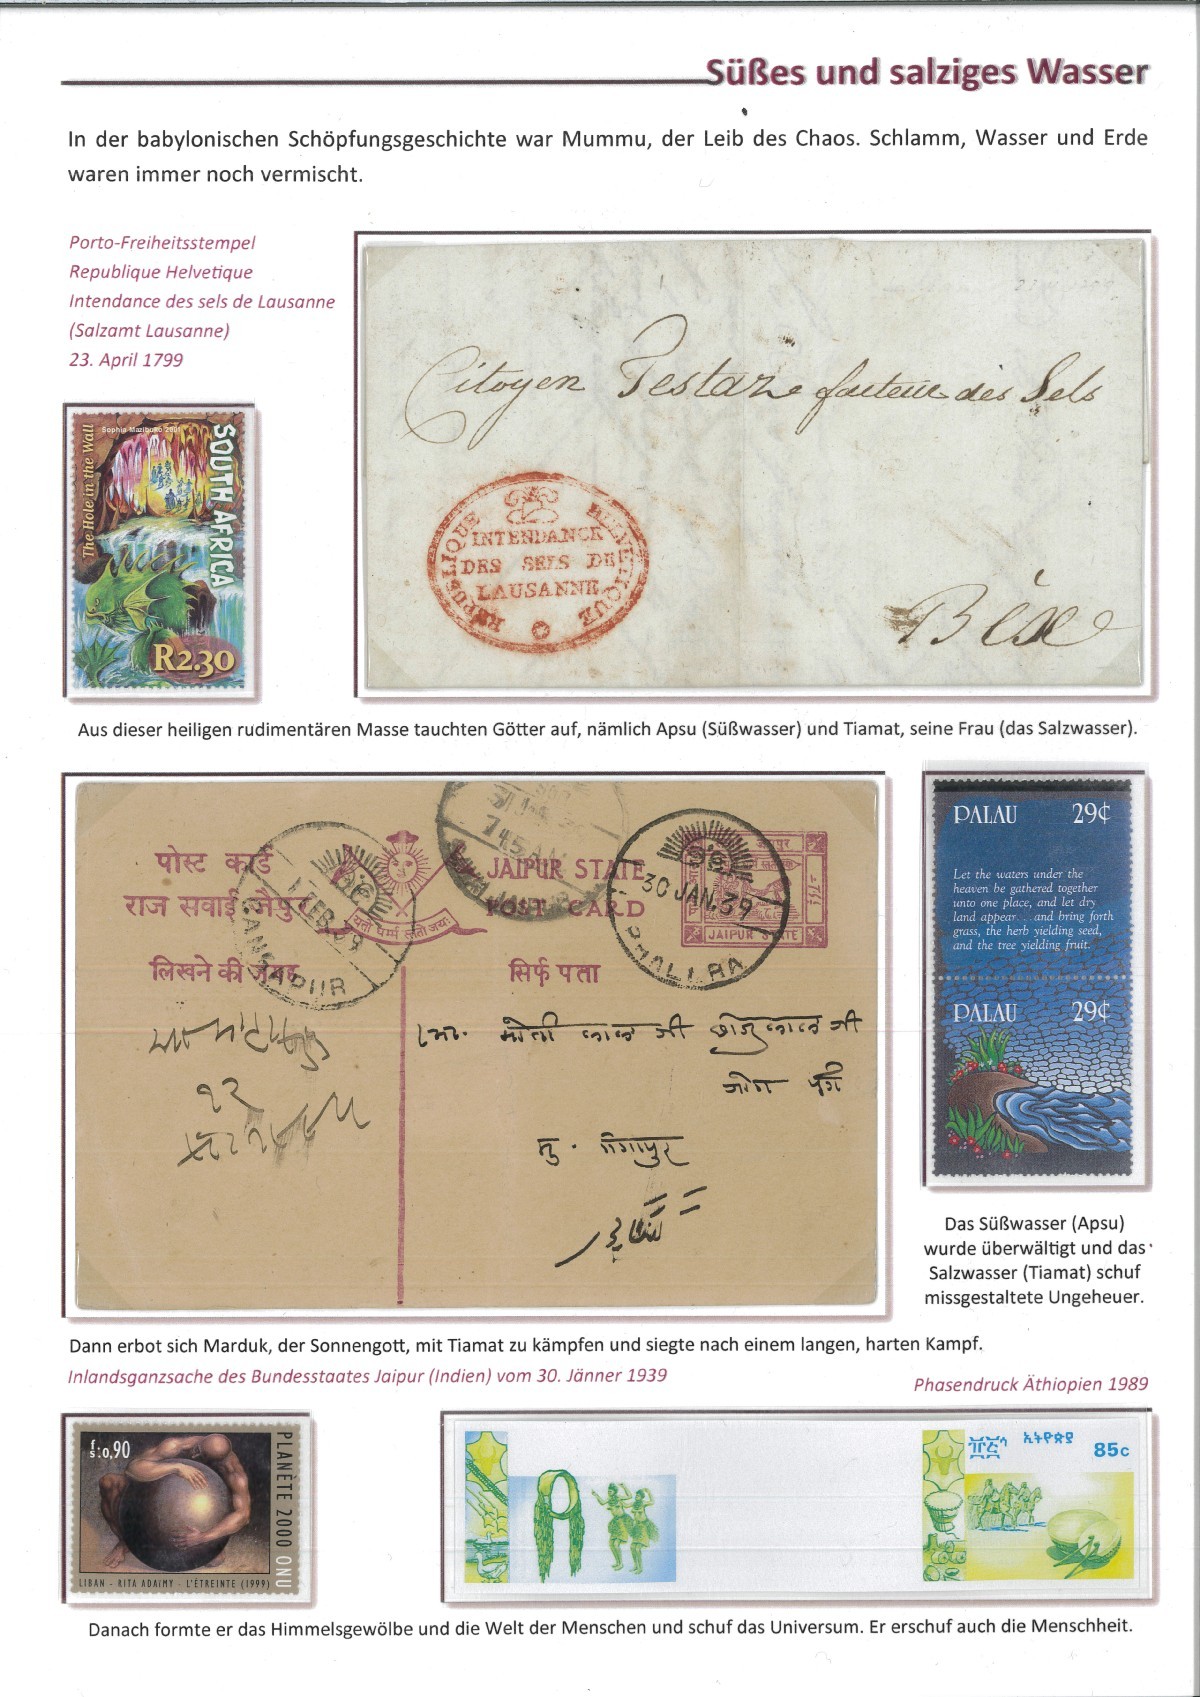 Süßes und salziges Wasser
In der babylonischen Schöpfungsgeschichte war Mummu, der Leib des Chaos. Schlamm, Wasser und Erde
waren immer noch vermischt.
Porto-Freiheitsstempel
Republique Helvetique
Intendance des sels de Lausanne
(Salzamt Lausanne)
23. April 1799
Sophia Mazibuko 2001
The Hole in the Wall
SOUTH AFRICA
R2.30
Citoyen Testaz facteur des Sels
REPUBLIQUE HELVETIQUE
INTENDANCE
DES SELS DE
LAUSANNE
Bex
Aus dieser heiligen rudimentären Masse tauchten Götter auf, nämlich Apsu (Süßwasser) und Tiamat, seine Frau (das Salzwasser).
पोस्ट कार्ड
राज सवाई जैपुर
लिखने की जगह
1 FEB. 39
GANGAPUR
यतो धर्म्म स्ततो जयः
7 45 A
JAIPUR STATE
POST CARD
सिर्फ पता
30 JAN. 39
PHALI.RA
JAIPUR STATE
मोती लाल जी
मु. गंगापुर
PALAU 29¢
Let the waters under the
heaven be gathered together
unto one place, and let dry
land appear... and bring forth
grass, the herb yielding seed,
and the tree yielding fruit.
PALAU 29¢
Das Süßwasser (Apsu)
wurde überwältigt und das
Salzwasser (Tiamat) schuf
missgestaltete Ungeheuer.
Dann erbot sich Marduk, der Sonnengott, mit Tiamat zu kämpfen und siegte nach einem langen, harten Kampf.
Inlandsganzsache des Bundesstaates Jaipur (Indien) vom 30. Jänner 1939
Phasendruck Äthiopien 1989
f.s:0,90
PLANÈTE 2000 ONU
LIBAN - RITA ADAIMY - L'ÉTREINTE (1999)
ኢትዮጵያ
85c
Danach formte er das Himmelsgewölbe und die Welt der Menschen und schuf das Universum. Er erschuf auch die Menschheit.